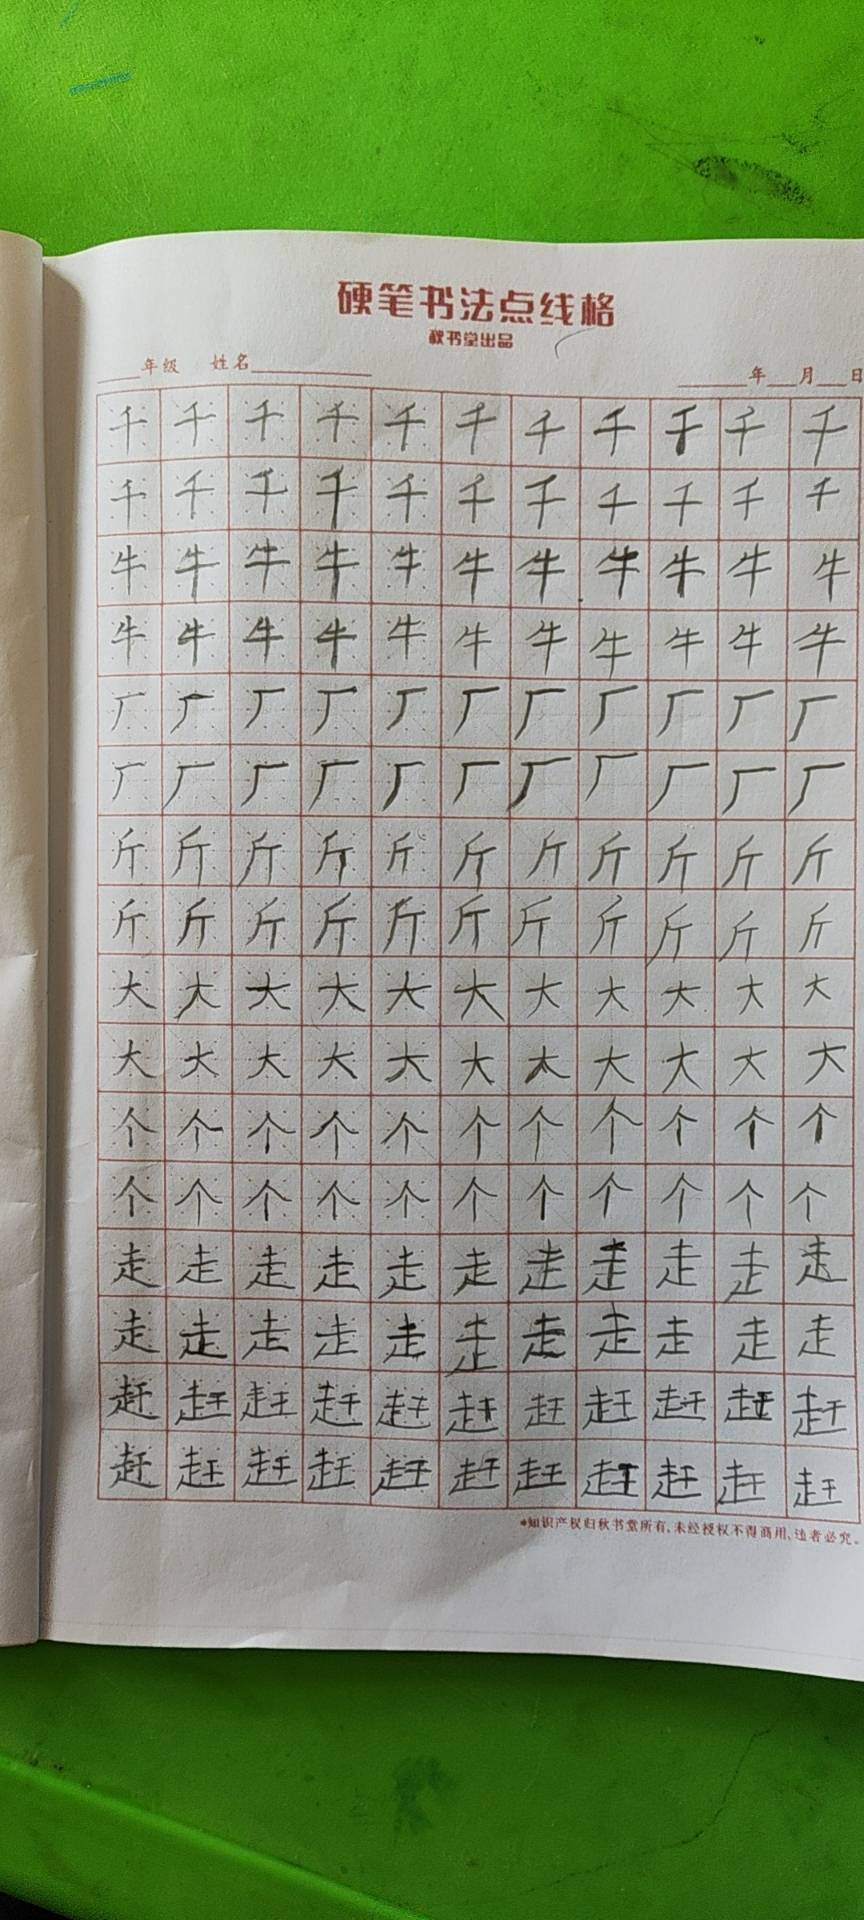 硬笔书法点线格
秋书堂出品
年级 姓名 年 月 日
千千千千千千千千千千千
千千千千千千千千千千千
牛牛牛牛牛牛牛牛牛牛牛
牛牛牛牛牛牛牛牛牛牛牛
厂厂厂厂厂厂厂厂厂厂厂
厂厂厂厂厂厂厂厂厂厂厂
斤斤斤斤斤斤斤斤斤斤斤
斤斤斤斤斤斤斤斤斤斤斤
大大大大大大大大大大大
大大大大大大大大大大大
个个个个个个个个个个个
个个个个个个个个个个个
走走走走走走走走走走走
走走走走走走走走走走走
赶赶赶赶赶赶赶赶赶赶赶
赶赶赶赶赶赶赶赶赶赶赶
*知识产权归秋书堂所有,未经授权不得商用,违者必究。